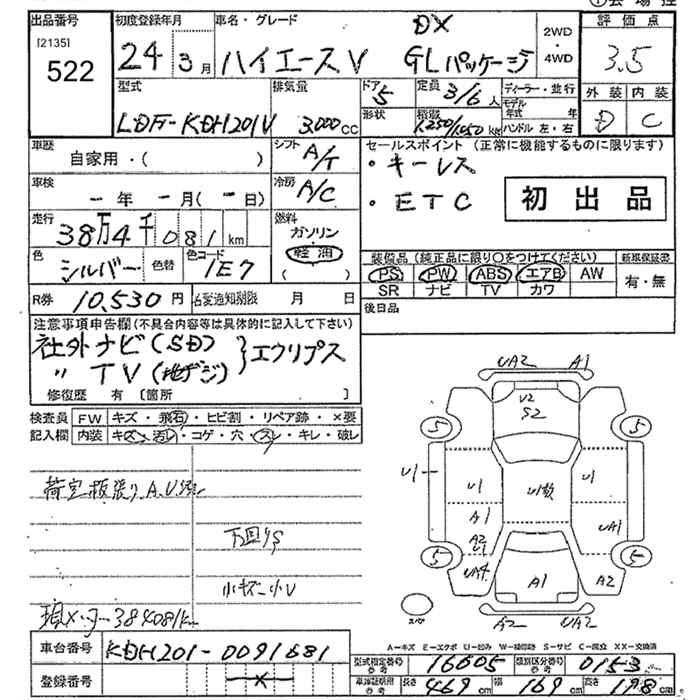 出品番号 初度登録年月 車名・グレード 評価点
[2135] 522
24年 3月 ハイエースV DX GLパッケージ 2WD・4WD 3.5
外装 内装
D C
型式 排気量 ドア 定員 ディーラー・並行
LDF-KDH201V 3,000cc 5 3/6人 モデル年式 年
形状 積載 1,250/1,050kg ハンドル 左・右
車歴 シフト セールスポイント (正常に機能するものに限ります)
自家用・( ) A/T ・キーレス
車検 冷房 ・ETC 初出品
-年 -月(-日) A/C
走行 燃料
38万4千081km ガソリン
色 色替 色コード 軽油
シルバー 1E7 ( )
装備品 (純正品に限り○をつけてください) 新車保証書
PS PW ABS エアB AW 有・無
SR ナビ TV カワ
R券 10,530円 名変通知期限 月 日
後日品
注意事項申告欄(不具合内容等は具体的に記入して下さい)
社外ナビ(SD)
〃 TV(地デジ) }エクリプス
修復歴 有 〔箇所 〕
検査員 FW キズ・飛石・ヒビ割・リペア跡・×要
記入欄 内装 キズ・汚レ・コゲ・穴・スレ・キレ・破レ
荷室板張りA.U
下回りS
小キズ小U
現メーター384081k
UA2 A1
U2
S2
5 5
U1
U1 U1数 U1
A1 UA1
A2
U1
5 5
UA4 A1 A2
スペア
A2 UA2
A=キズ E=エクボ U=凹み W=補修跡 S=サビ C=腐食 XX=交換済
車台番号 KDH201-0091681
登録番号 ×
型式指定番号 参考 16605 類別区分番号 参考 0153
車検証明用 参考 長さ 469cm 幅 169cm 高さ 198cm